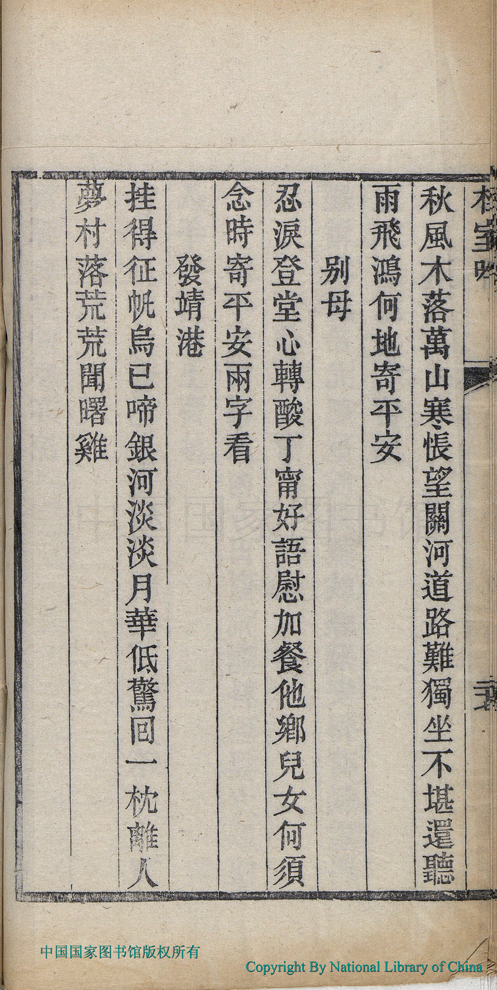 秋風木落萬山寒悵望關河道路難獨坐不堪還聽
雨飛鴻何地寄平安
別母
忍淚登堂心轉酸丁甯好語慰加餐他鄉兒女何須
念時寄平安兩字看
發靖港
挂得征帆烏已啼銀河淡淡月華低驚回一枕離人
夢村落荒荒聞曙雞
中国国家图书馆版权所有
Copyright By National Library of China